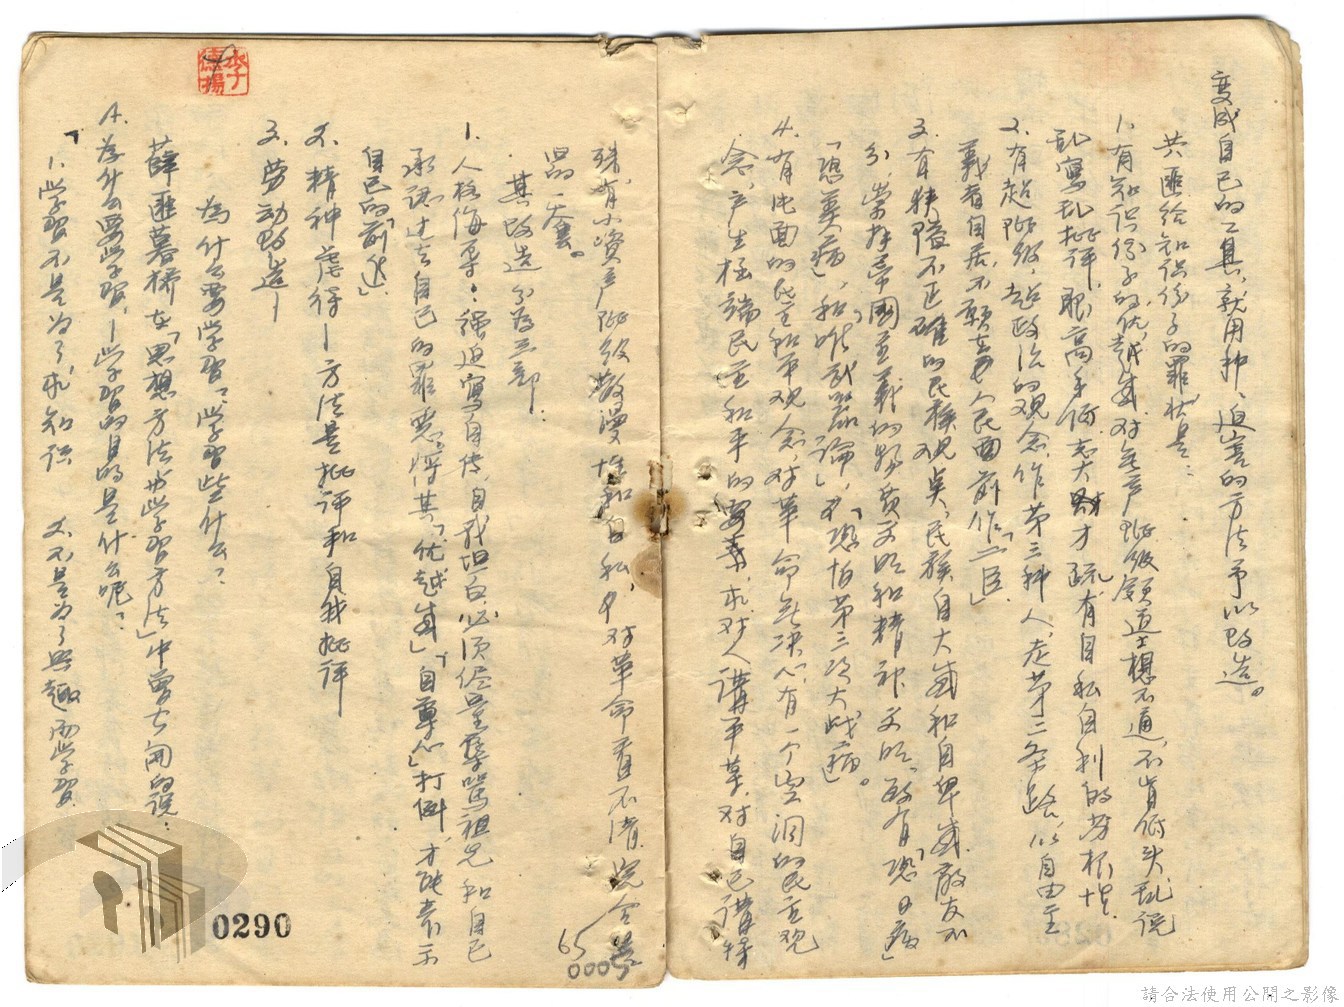 变成自己的工具，就用种、迫害的方法予以改造。
共匪给知识份子的罪状是：
1.有知识份子的优越感，对无产阶级领道士想不通，不肯低头，乱说
乱写乱批评，眼高手低，志大才疏，有自私自利的劳根性
2.有超阶级，超政治的观念，作第三种人，走第三条路，以自由主
义者自居，不愿在人民面前作「二臣」
3.有狭隘不正确的民族观点，民族自大感和自卑感，敵友不
分，崇拜帝國主義的物质文明和精神文明，故有「恐日病」
「恐美病」，和「唯武器论」，「恐怕第三次大战病」。
4.有片面的民主和平观念，对革命无决心，有一个空洞的民主观
念，产生极端民主和平的要求，对人講平等，对自己講特
殊，有小资产阶级散漫性和自私，对革命看不清，完全是
一套。
其改造分为三部：
1.人格侮辱：强迫写自传，自我坦白，必须尽量辱骂祖先和自己
承认过去自己的罪恶，将其「优越感」，「自尊心」打倒，才能表示
自己的「前进」
2.精神虐待—方法是批评和自我批评
3.劳动改造—
为什么要学習？学習些什么？
薛匪暮桥在「思想方法与学習方法」中曾公开的说：
A.为什么要学習，—学習的目的是什么呢？
1.学習不是为了求知识 2.不是为了興趣而学習
李德揚
0290
65
0005
請合法使用公開之影像